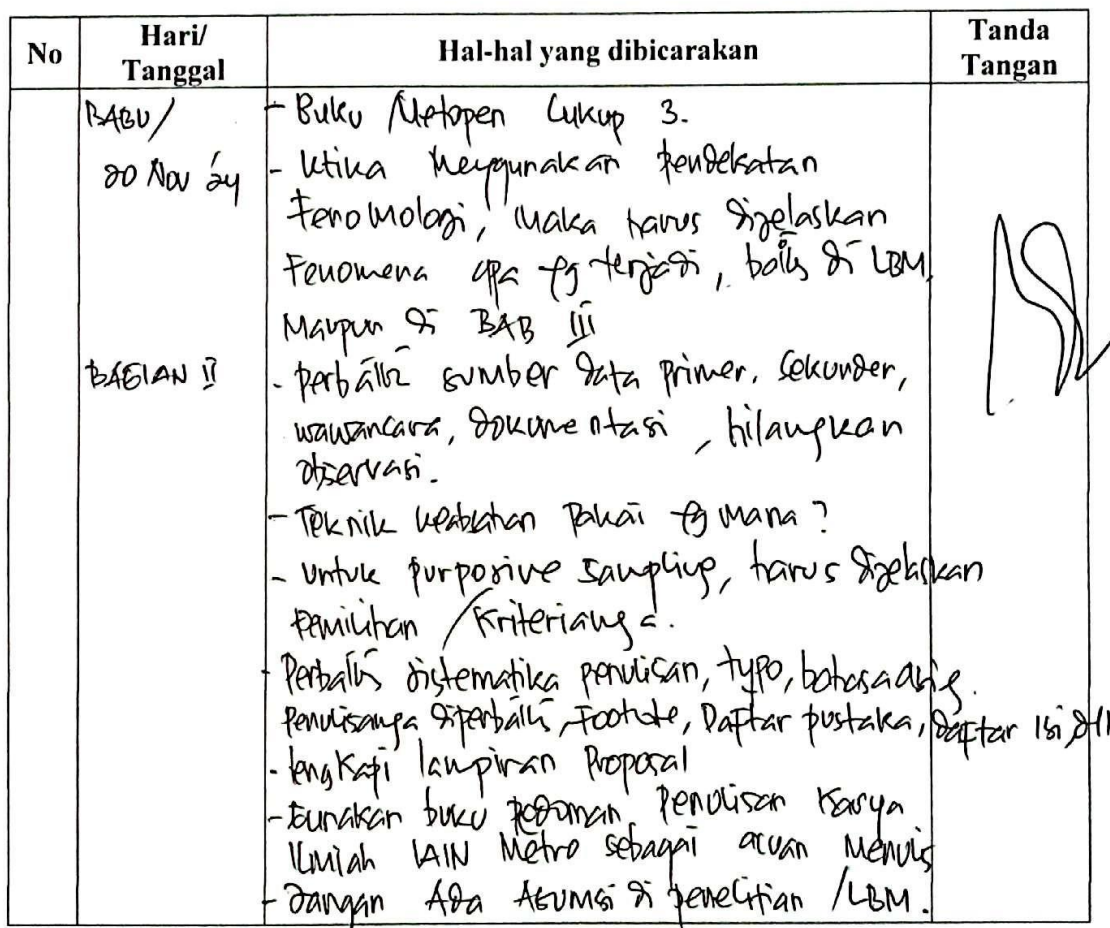 No
Hari/
Tanggal
Hal-hal yang dibicarakan
Tanda
Tangan
RABU/
20 Nov '24
- Buku Metopen Cukup 3.
- Ketika Menggunakan pendekatan
Fenomologi, Maka harus dijelaskan
Fenomena apa yg terjadi, baik di LBM,
Maupun di BAB III
BAGIAN II
- perbaiki sumber data primer, Sekunder,
wawancara, dokumentasi, hilangkan
observasi.
- Teknik keabsahan Pakai yg mana?
- Untuk purposive sampling, harus dijelaskan
Pemilihan / Kriterianya.
- Perbaiki sistematika penulisan, typo, bahasa asing.
Penulisanya diperbaiki, Footnote, Daftar pustaka, Daftar Isi, dll
- lengkapi lampiran Proposal
- Gunakan buku pedoman Penulisan Karya
Ilmiah IAIN Metro sebagai acuan Menulis
- Jangan Ada Asumsi di penelitian / LBM.